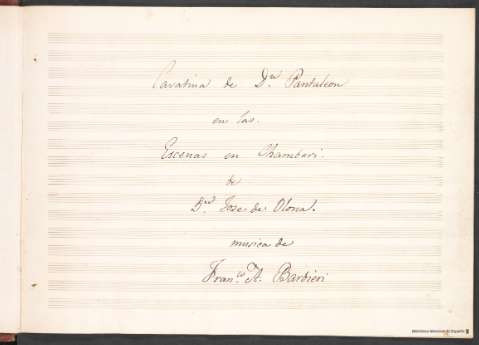 Cavatina de Dn. Pantaleon
en las.
Escenas en Chamberi.
de
Dn. Jose de Olona.
musica de
Franco. A. Barbieri
Biblioteca Nacional de España